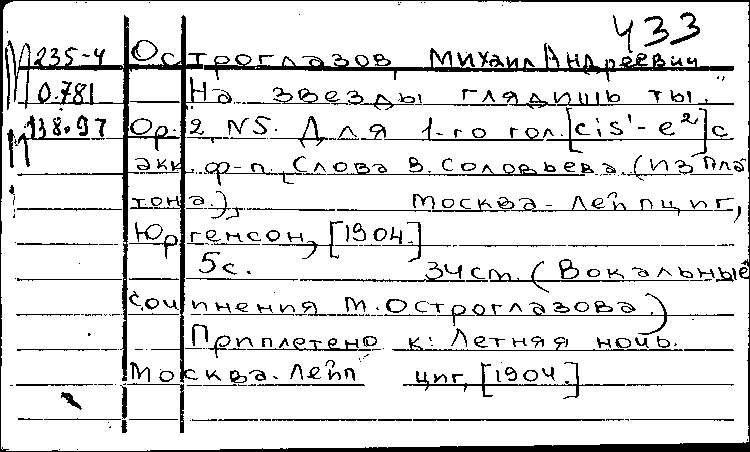 433
М 235-4 Остроглазов, Михаил Андреевич
0.781 "На звезды глядишь ты."
М 138.97 Ор. 2, N5. Для 1-го гол. [cis¹-e²] с
акк. ф-п. Слова В. Соловьева. (Из Пла
тона.), Москва-Лейпциг,
Юргенсон, [1904.]
5с. 34см. (Вокальные
сочинения М. Остроглазова.)
Приплетено к: Летняя ночь.
Москва. Лейпциг, [1904.]